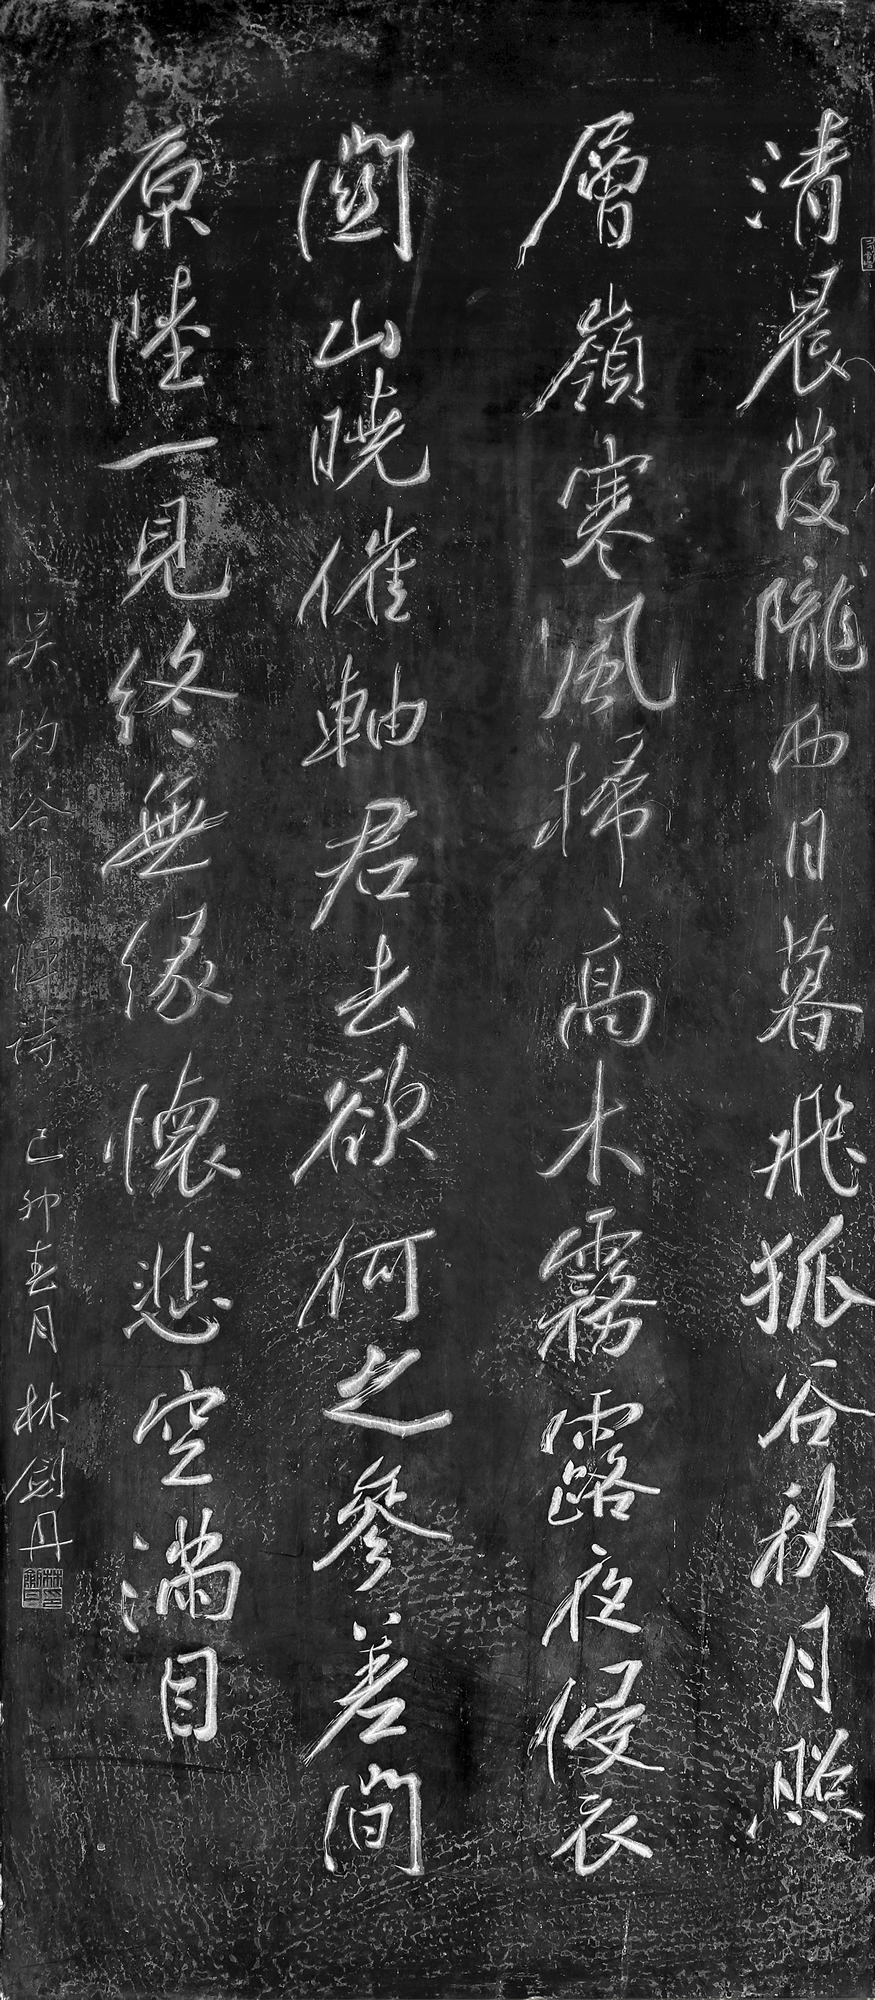 清晨發隴西日暮飛狐谷秋月照
層嶺寒風掃高木霧露夜侵衣
關山曉催軸君去欲何之參差間
原陸一見終無緣懷悲空滿目
吳均答柳惲詩 己卯春月 林劍丹